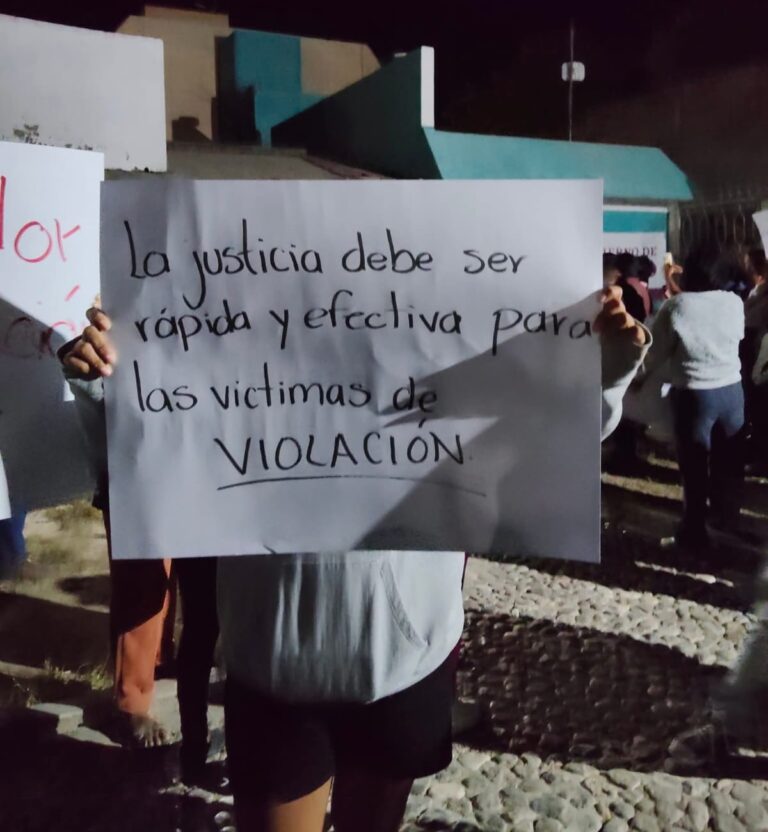 La justicia debe ser
rápida y efectiva para
las victimas de
VIOLACIÓN.